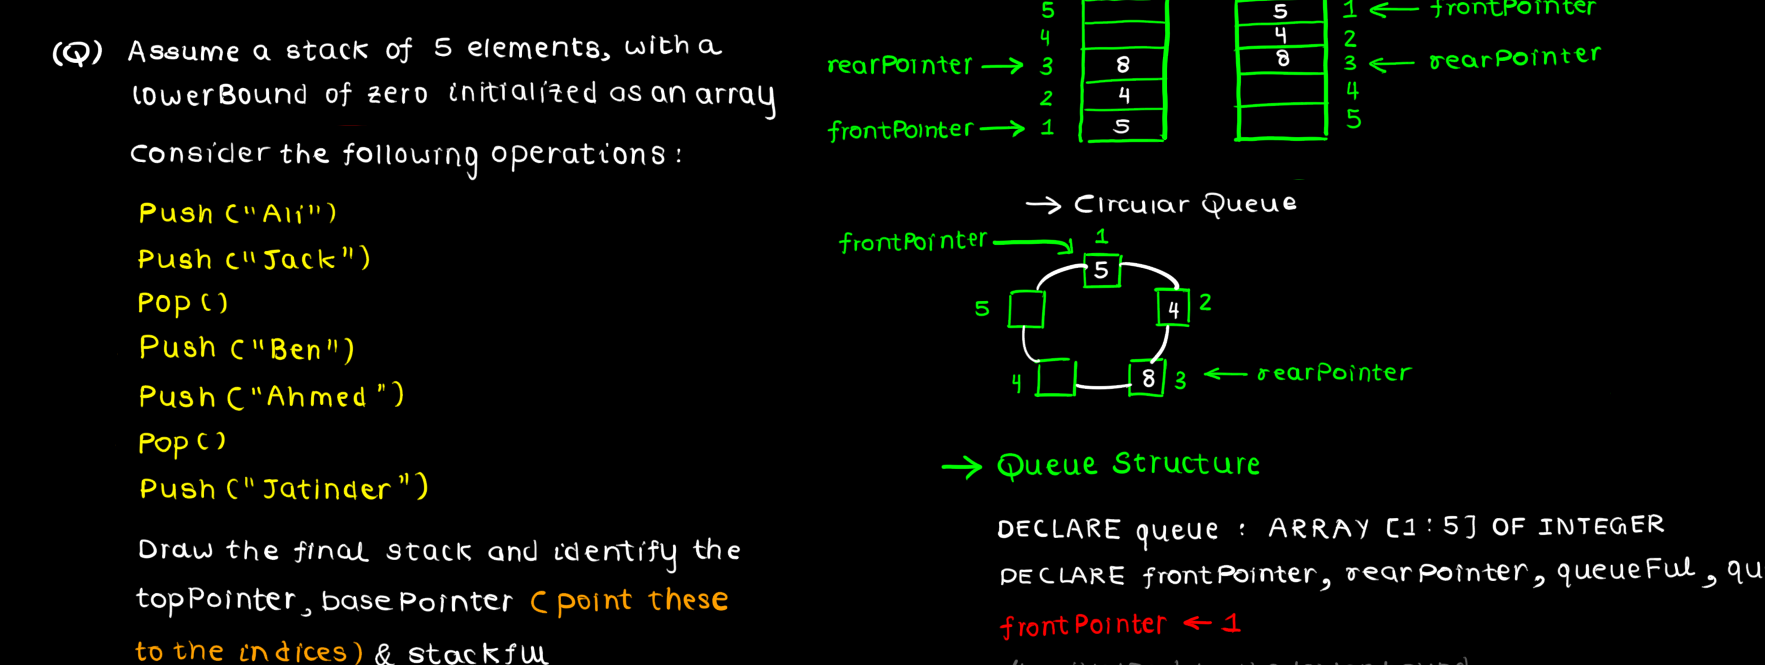 (Q) Assume a stack of 5 elements, with a
lowerBound of zero initialized as an array
Consider the following operations :
Push ("Ali")
Push ("Jack")
Pop ()
Push ("Ben")
Push ("Ahmed")
Pop ()
Push ("Jatinder")
Draw the final stack and identify the
topPointer, basePointer (point these
to the indices) & stackful
5
4
rearPointer → 3 8
2 4
frontPointer → 1 5
5 1 ← frontPointer
4 2
8 3 ← rearPointer
4
5
→ Circular Queue
frontPointer
1
5
5
4 2
4
8 3 ← rearPointer
→ Queue Structure
DECLARE queue : ARRAY [1:5] OF INTEGER
DECLARE frontPointer, rearPointer, queueFul, qu
frontPointer ← 1